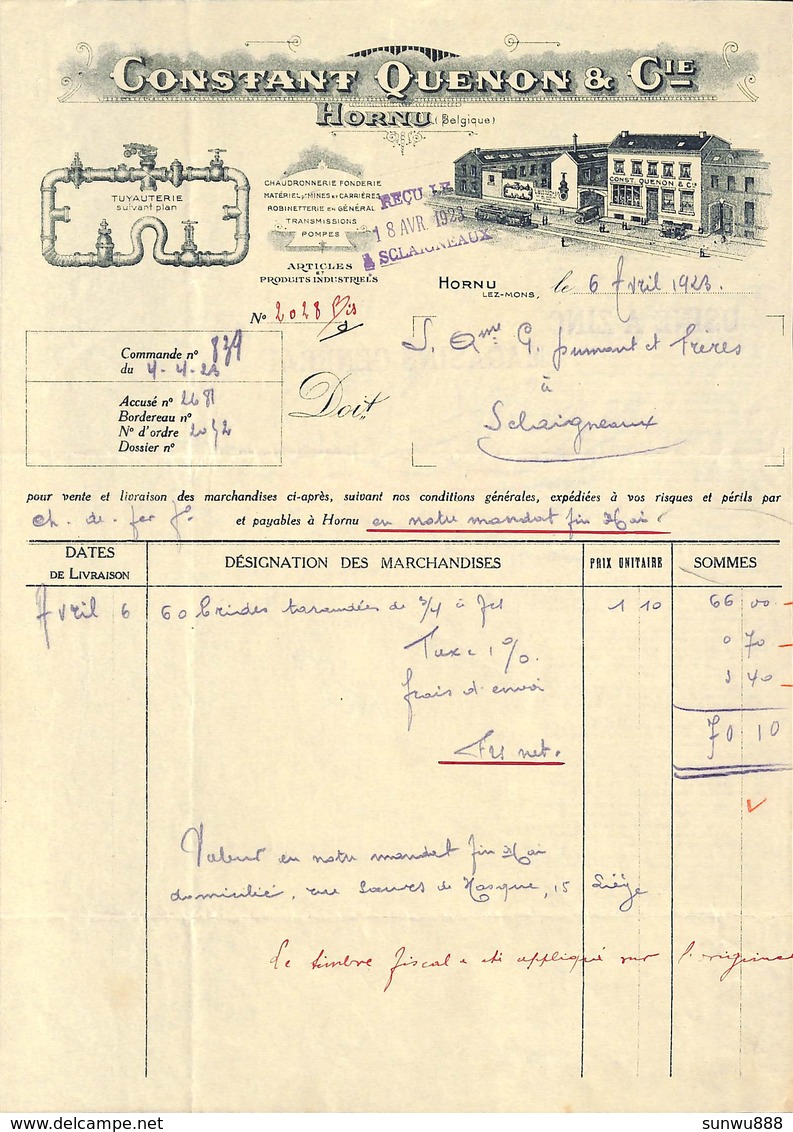 CONSTANT QUENON & CIE
HORNU (Belgique)
TUYAUTERIE
suivant plan
CHAUDRONNERIE FONDERIE
MATÉRIEL pr MINES et CARRIÈRES
ROBINETTERIE EN GÉNÉRAL
TRANSMISSIONS
POMPES
ARTICLES
ET
PRODUITS INDUSTRIELS
CONST. QUENON & Cie
REÇU LE
18 AVR. 1923
à SCLAIGNEAUX
HORNU
LEZ-MONS, le 6 Avril 1923.
No 2028 Bis
Commande no 839
du 4-4-23
Accusé no 2681
Bordereau no
No d'ordre 2032
Dossier no
Doit
S. Ame G. Dumont et Frères
à
Sclaigneaux
pour vente et livraison des marchandises ci-après, suivant nos conditions générales, expédiées à vos risques et périls par
ch. de fer et payables à Hornu en notre mandat fin Mai.
DATES
DE LIVRAISON
DÉSIGNATION DES MARCHANDISES
PRIX UNITAIRE
SOMMES
Avril 6 60 brides taraudées de 3/4 à frs 1 10 66 00
Taxe 1 % 0 70
frais d'envoi 3 40
Frs net. 70 10
Valeur en notre mandat fin Mai
domicilié, rue Soeurs de Hasque, 15 Liège
Le timbre fiscal a été appliqué sur l'original
sunwu888